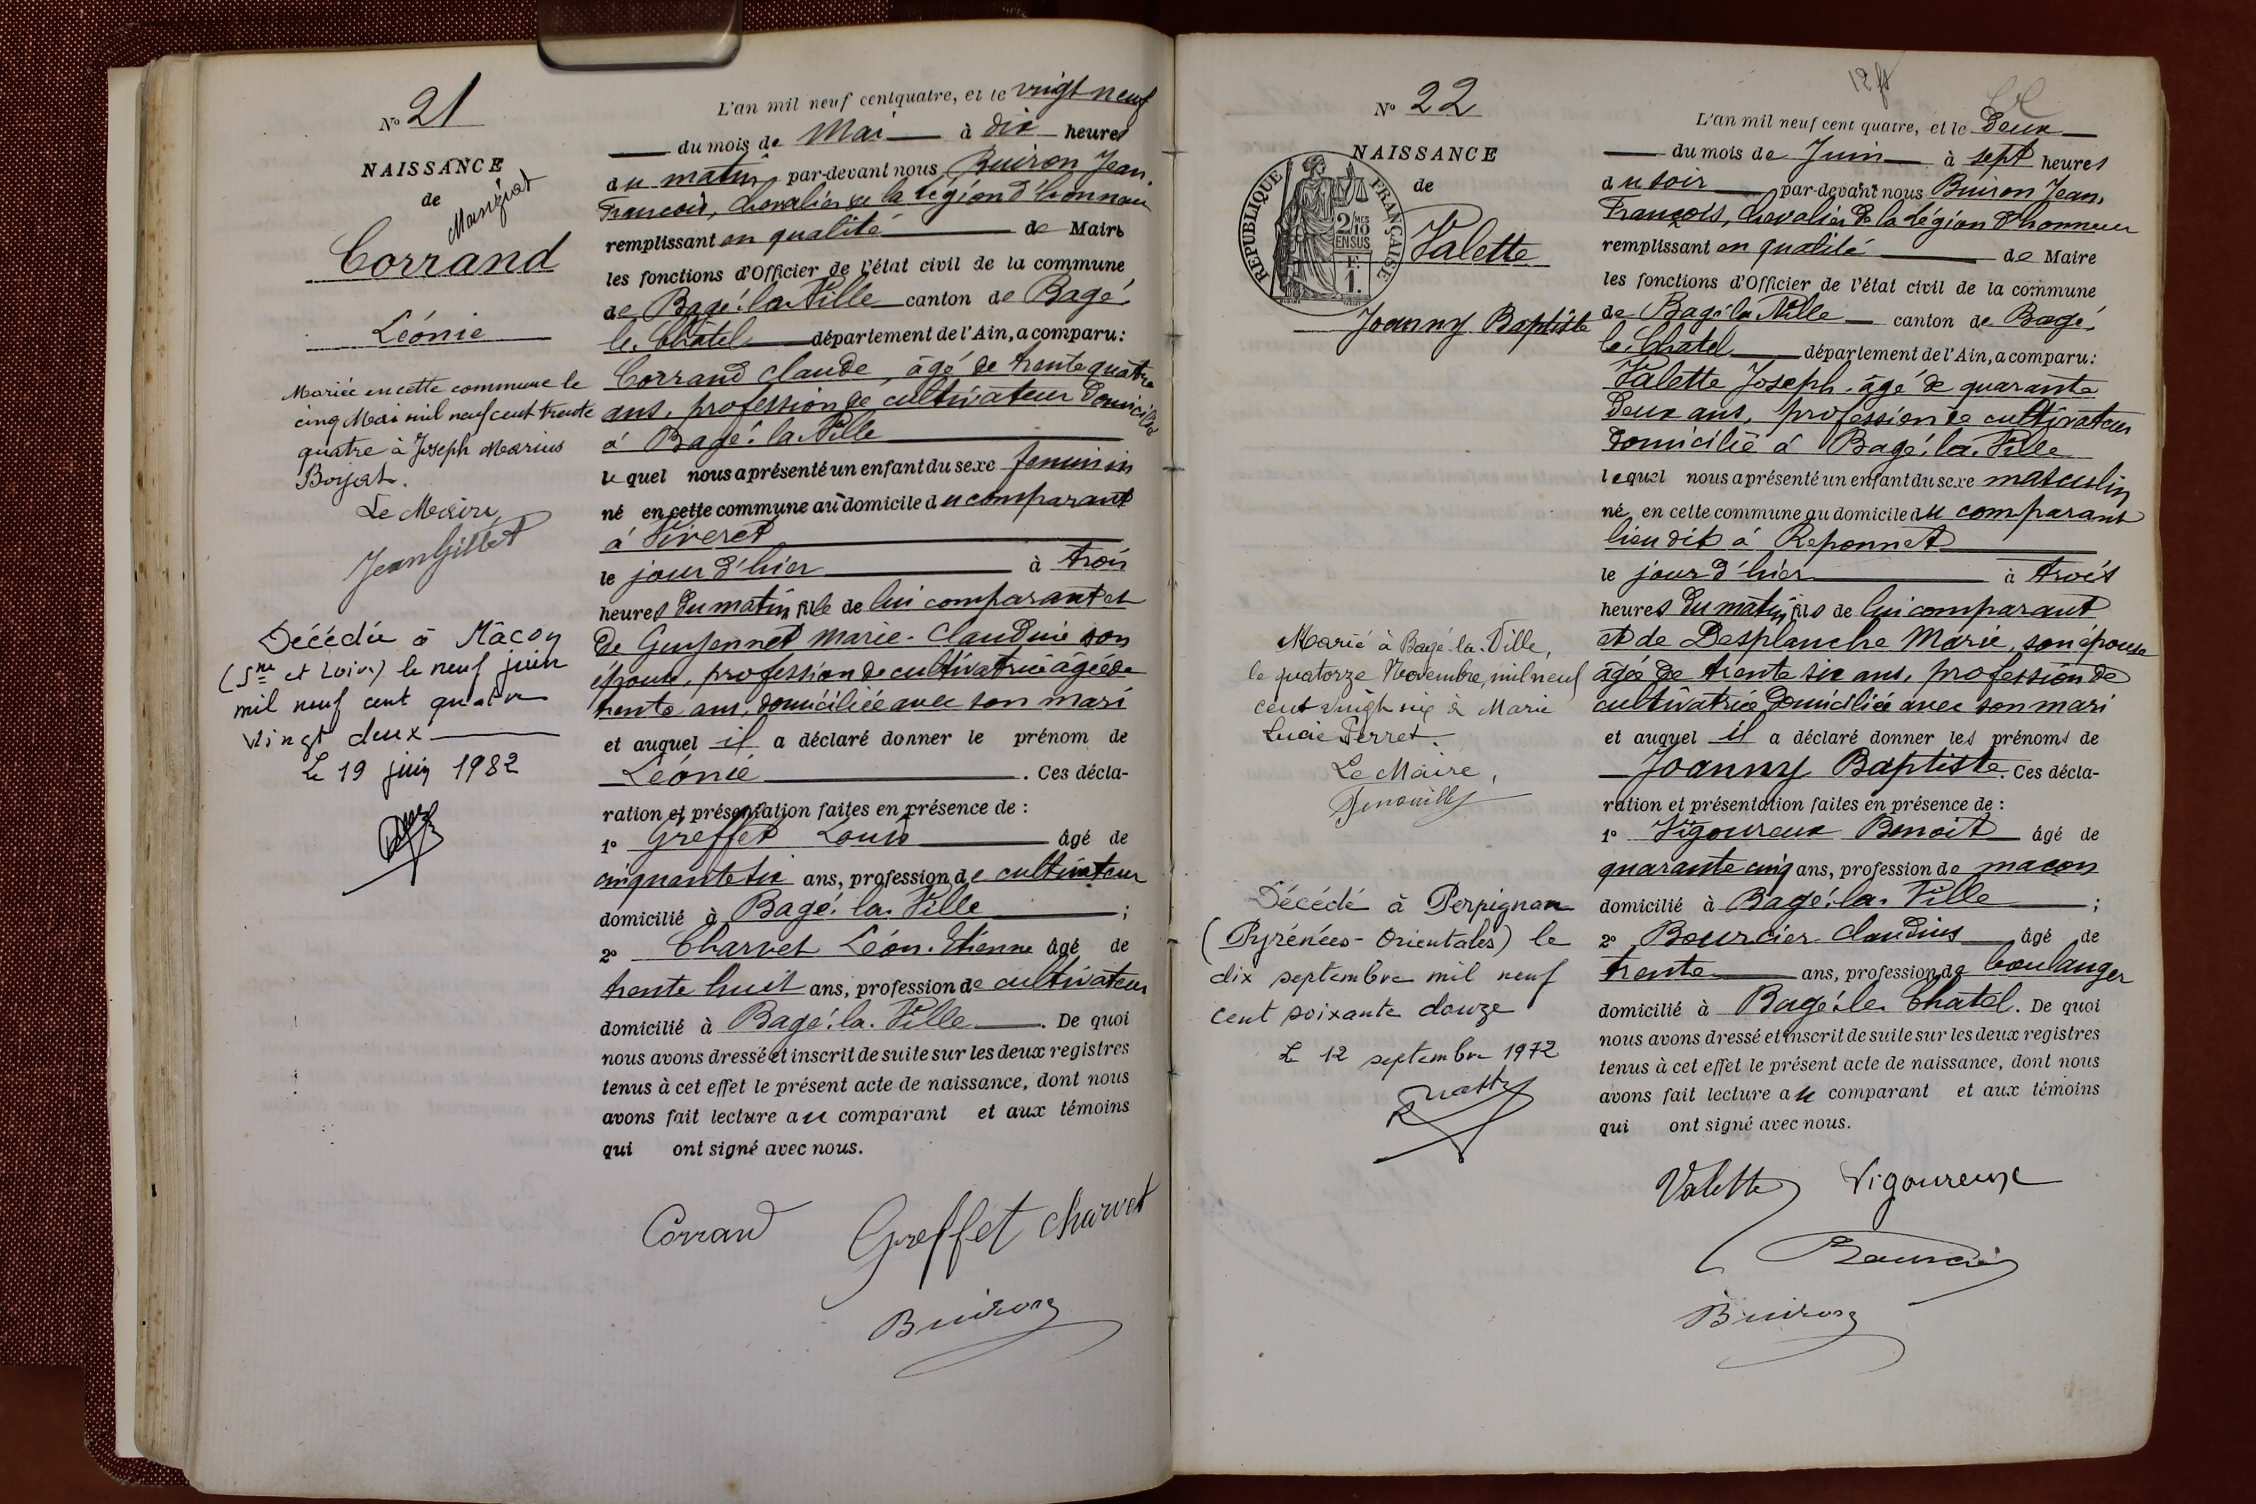 Nº 21
NAISSANCE
de
Manziat
Corrand
Léonie
Mariée en cette commune le
cinq Mai mil neuf cent trente
quatre à Joseph Marius
Borjat.
Le Maire,
Jean Gillet
Décédée à Mâcon
(Sne et Loire) le neuf juin
mil neuf cent quatre
vingt deux
Le 19 juin 1982
L'an mil neuf cent quatre, et le vingt neuf
du mois de Mai à dix heures
du matin, par-devant nous Buiron Jean.
François, chevalier de la légion d'honneur
remplissant en qualité de Maire
les fonctions d'Officier de l'état civil de la commune
de Bagé-la-Ville canton de Bagé-
le-Châtel département de l'Ain, a comparu:
Corrand Claude, âgé de trente quatre
ans, profession de cultivateur domicilié
à Bagé-la-Ville
lequel nous a présenté un enfant du sexe féminin
né en cette commune au domicile du comparant
à Viveret
le jour d'hier à trois
heures du matin, fille de lui comparant et
de Guyennet Marie-Claudine son
épouse, profession de cultivatrice âgée de
trente ans, domiciliée avec son mari
et auquel il a déclaré donner le prénom de
Léonie . Ces décla-
ration et présentation faites en présence de :
1º Greffet Louis âgé de
cinquante six ans, profession de cultivateur
domicilié à Bagé-la-Ville ;
2º Charvet Léon-Etienne âgé de
trente huit ans, profession de cultivateur
domicilié à Bagé-la-Ville . De quoi
nous avons dressé et inscrit de suite sur les deux registres
tenus à cet effet le présent acte de naissance, dont nous
avons fait lecture au comparant et aux témoins
qui ont signé avec nous.
Corrand Greffet Charvet
Buiron
Nº 22
NAISSANCE
de
RÉPUBLIQUE FRANÇAISE
2/10 MES
EN SUS
F.
1.
Valette
Joanny Baptiste
Marié à Bagé-la-Ville,
le quatorze Novembre, mil neuf
cent vingt six à Marie
Lucie Perret.
Le Maire,
Décédé à Perpignan
(Pyrénées-Orientales) le
dix septembre mil neuf
cent soixante douze
Le 12 septembre 1972
L'an mil neuf cent quatre, et le Deux
du mois de Juin à sept heures
du soir par-devant nous Buiron Jean,
François, chevalier de la légion d'honneur
remplissant en qualité de Maire
les fonctions d'Officier de l'état civil de la commune
de Bagé-la-Ville canton de Bagé-
le-Chatel département de l'Ain, a comparu:
Valette Joseph. âgé de quarante
deux ans, profession de cultivateur
domicilié à Bagé-la-Ville
lequel nous a présenté un enfant du sexe masculin
né en cette commune au domicile du comparant
lieu dit à Reponnet
le jour d'hier à trois
heures du matin, fils de lui comparant
et de Desplanche Marie, son épouse
âgée de trente six ans, profession de
cultivatrice domiciliée avec son mari
et auquel il a déclaré donner les prénoms de
Joanny Baptiste. Ces décla-
ration et présentation faites en présence de :
1º Vigoureux Benoit âgé de
quarante cinq ans, profession de maçon
domicilié à Bagé-la-Ville ;
2º Bourcier Claudius âgé de
trente ans, profession de boulanger
domicilié à Bagé-le-Chatel. De quoi
nous avons dressé et inscrit de suite sur les deux registres
tenus à cet effet le présent acte de naissance, dont nous
avons fait lecture au comparant et aux témoins
qui ont signé avec nous.
Valette Vigoureux
Bourcier
Buiron